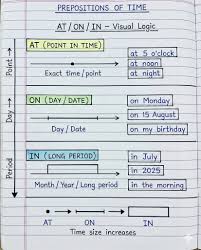 PREPOSITIONS OF TIME
AT / ON / IN - Visual Logic
AT (POINT IN TIME)
Exact time / point
at 5 o'clock
at noon
at night
Point
ON (DAY / DATE)
Day / Date
on Monday
on 15 August
on my birthday
Day
IN (LONG PERIOD)
Month / Year / Long period
in July
in 2025
in the morning
Period
AT
ON
IN
Time size increases